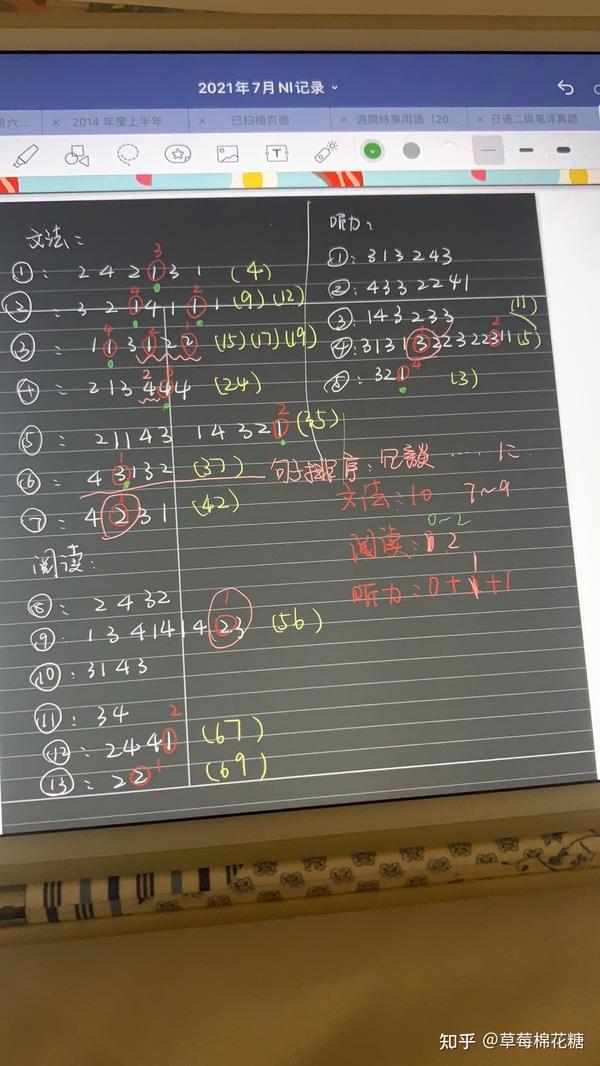 2021年7月NI记录
第六...
× 2014 年度上半年...
× 已扫描页面
× 週間時事用語(20...
× 日语二级笔译真题
文法:
3
①: 2 4 2 1 3 1 (4)
4 2
②: 3 2 1 4 1 1 1 (9)(12)
③: 1 1 3 1 2 2 (15)(17)(19)
④: 2 1 3 4 4 4 (24)
2
⑤: 2 1 1 4 3 1 4 3 2 1 (35)
1
⑥: 4 3 1 3 2 (37)
⑦: 4 2 3 1 (42)
阅读:
⑧: 2 4 3 2
1
⑨: 1 3 4 1 4 1 4 2 3 (56)
⑩: 3 1 4 3
⑪: 3 4
2
⑫: 2 4 4 1 (67)
1
⑬: 2 2 (69)
听力:
①: 3 1 3 2 4 3
②: 4 3 3 2 2 4 1
③: 1 4 3 2 3 3 (11)
2
④: 3 1 3 1 3 3 2 3 2 2 3 1 1 (5)
4
⑤: 3 2 1 (3)
句子排序: 冗談 ... に
文法: 10 7~9
0~2
阅读: 2
1
听力: 0+1+1
知乎 @草莓棉花糖